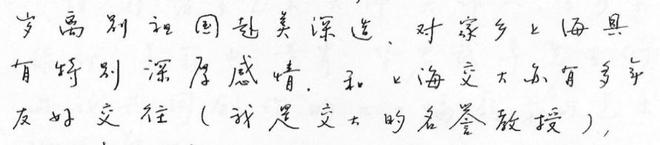 岁离别祖国赴美深造，对家乡上海具
有特别深厚感情。和上海交大亦有多年
友好交往（我是交大的名誉教授），